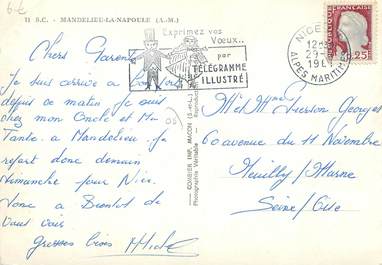 6 €
11 S.C. - MANDELIEU-LA-NAPOULE (A.-M.)
Exprimez vos
Vœux..
par
TÉLÉGRAMME
ILLUSTRÉ
NICE
12
29-
19
ALPES MARITIMES
REPUBLIQUE FRANÇAISE
0,25
Chers Parents
Je suis arrivé a
depuis ce matin je suis
chez mon Oncle et Ma
Tante. a Mandelieu je
repart donc demain
dimanche pour Nice.
Donc a Bientot de
vous voir
Grosses bises
COMBIER IMP. MACON (S.-et-L.)
Photographie Véritable
06
Mr et Mme Georges
60 avenue du 11 Novembre
Neuilly/Marne
Seine/Oise